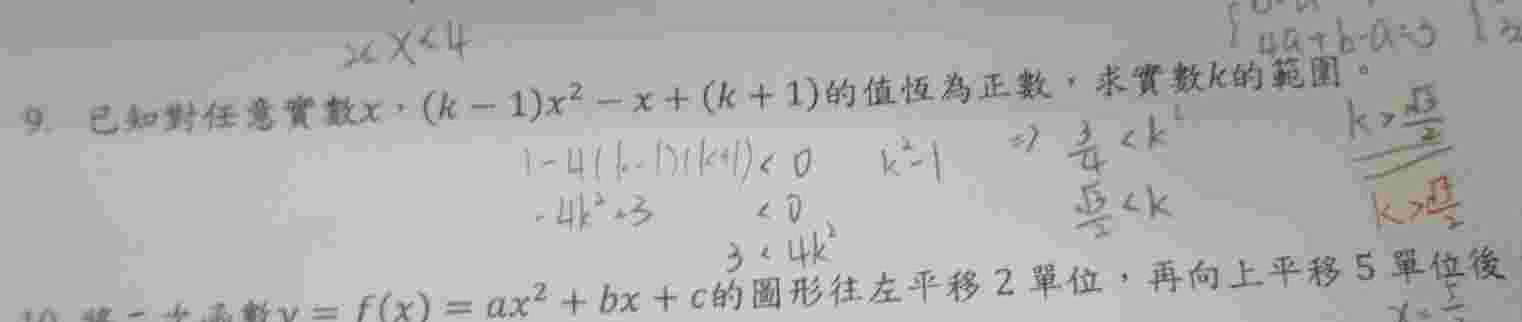 x< x<4
4a+b-a=3
9. 已知對任意實數x，(k − 1)x² − x + (k + 1)的值恆為正數，求實數k的範圍。
1-4(k-1)(k+1)<0 k²-1 ⇒ 3/4 < k² k > √3/2
-4k²+3 <0 √3/2 < k k > √3/2
3 < 4k²
y = f(x) = ax² + bx + c的圖形往左平移 2 單位，再向上平移 5 單位後